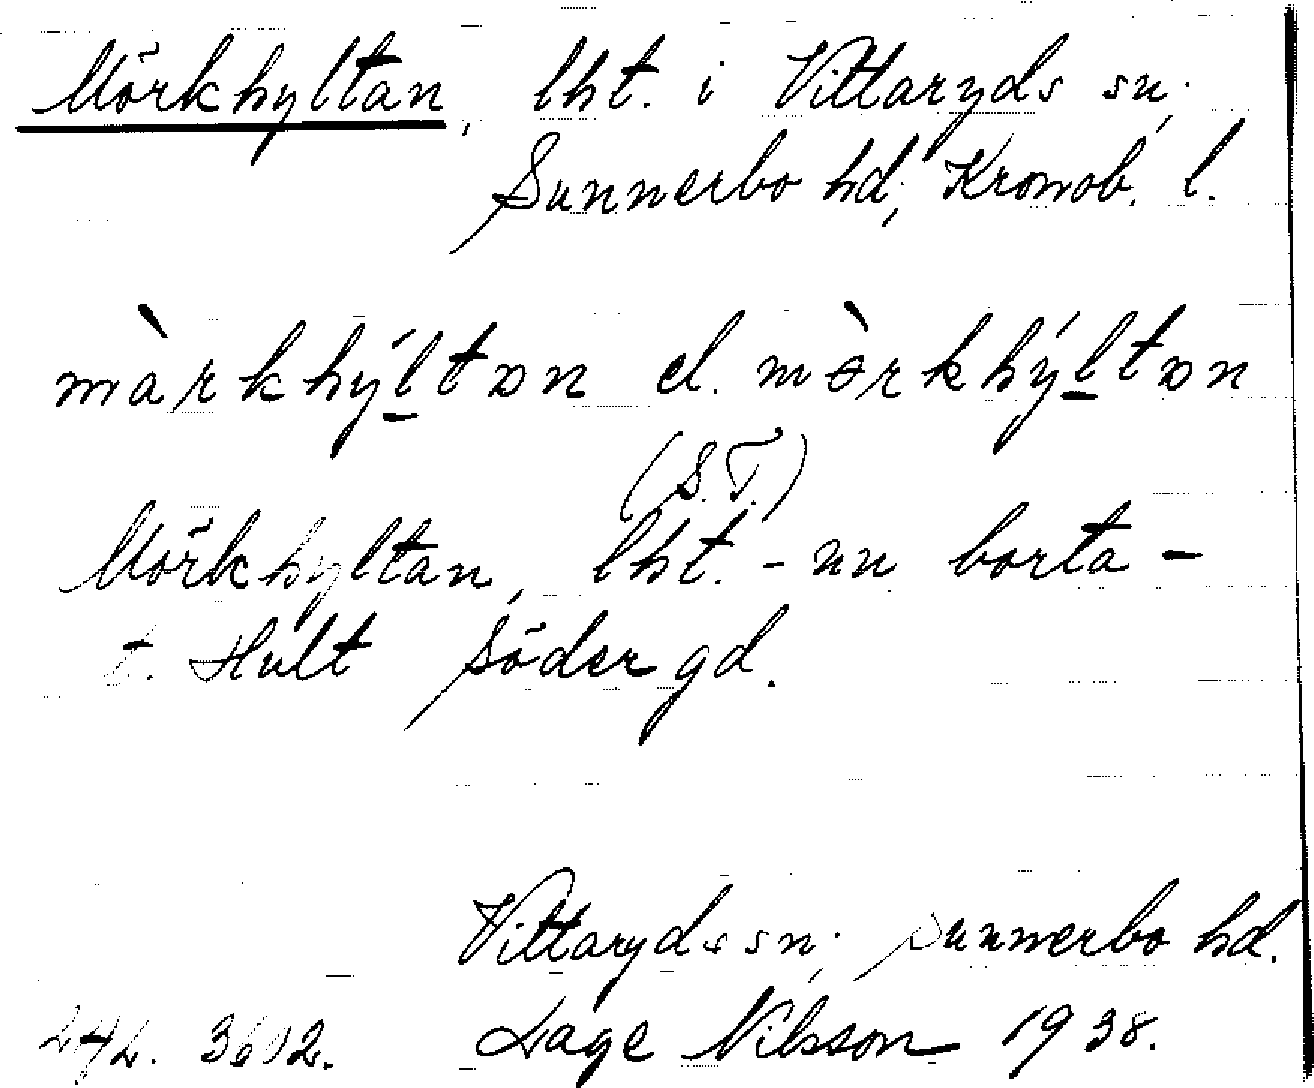 Mörkhyltan, lht. i Vittaryds sn;
Sunnerbo hd; Kronob. l.
màrkhýltɒn el. mɵ̀rkhýltɒn
(S.T.)
Mörkhyltan, lht. - nu borta -
t. Hult Södergd.
Vittaryds sn; Sunnerbo hd.
LAL. 3602. Dage Nilsson 1938.